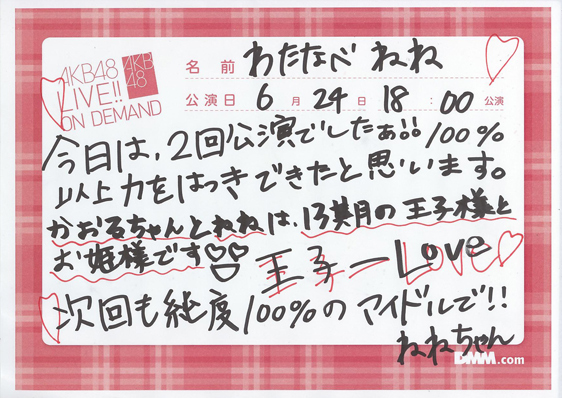 AKB48
LIVE!!
ON DEMAND
AKB
48
名前 わたなべ ねね
公演日 6月24日 18:00公演
今日は、2回公演でしたぁ!! 100%
以上力をはっきできたと思います。
かおるちゃんとねねは、13期の王子様と
お姫様です
王子ーLove
次回も純度100%のアイドルで!!
ねねちゃん
DMM.com